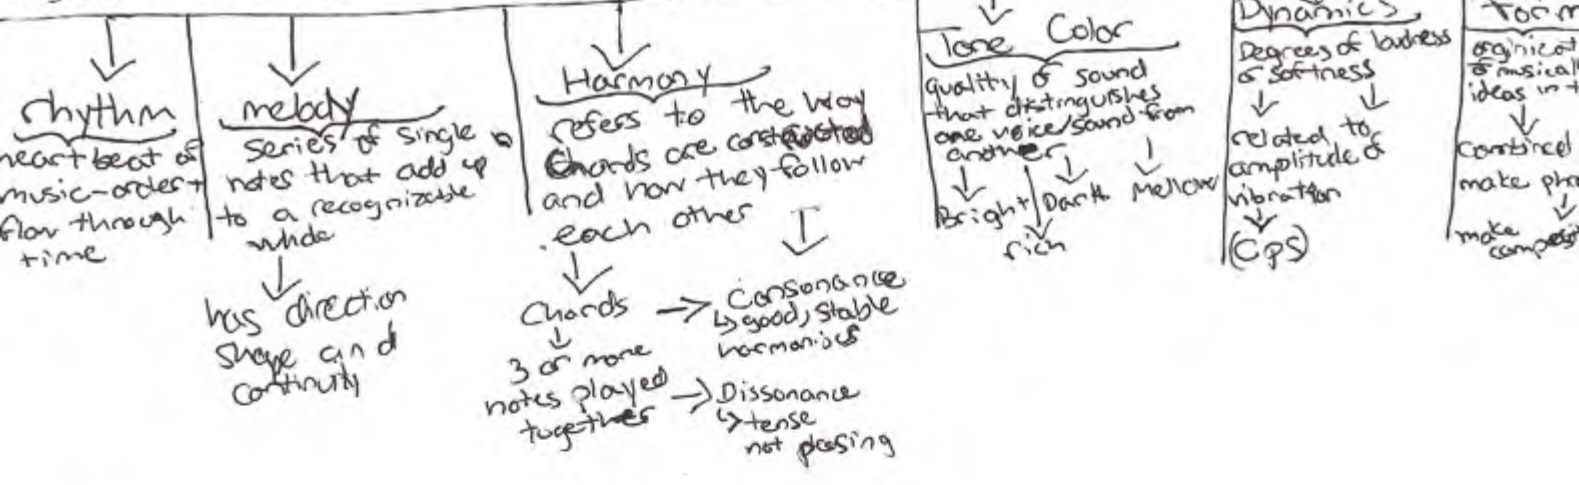 rhythm
heart beat of
music-order +
flow through
time
melody
series of single
notes that add up
to a recognizable
whole
has direction
shape and
continuity
Harmony
refers to the way
chords are constructed
and how they follow
each other
Chords
3 or more
notes played
together
Consonance
good, stable
harmonics
Dissonance
tense
not pleasing
Tone Color
quality of sound
that distinguishes
one voice/sound from
another
Bright/Dark Mellow
rich
Dynamics
Degrees of loudness
or softness
related to
amplitude of
vibration
(CPS)
Form
of musical
ideas in
combined
make
make